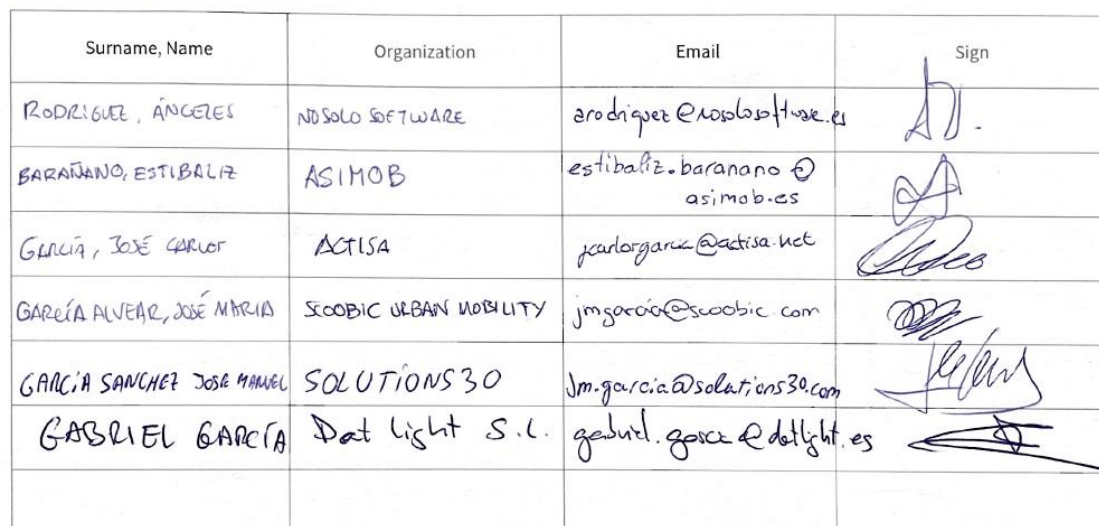 Surname, Name Organization Email Sign
RODRIGUEZ, ÁNGELES NOSOLO SOFTWARE arodriguez@nosolosoftware.es
BARAÑANO, ESTIBALIZ ASIMOB estibaliz.baranano@
asimob.es
GARCÍA, JOSÉ CARLOS ACTISA jcarlosgarcia@actisa.net
GARCÍA ALVEAR, JOSÉ MARIA SCOOBIC URBAN MOBILITY jmgarcia@scoobic.com
GARCÍA SANCHEZ JOSE MANUEL SOLUTIONS30 jm.garcia@solutions30.com
GABRIEL GARCÍA Dot Light S.L. gabriel.garcia@dotlight.es